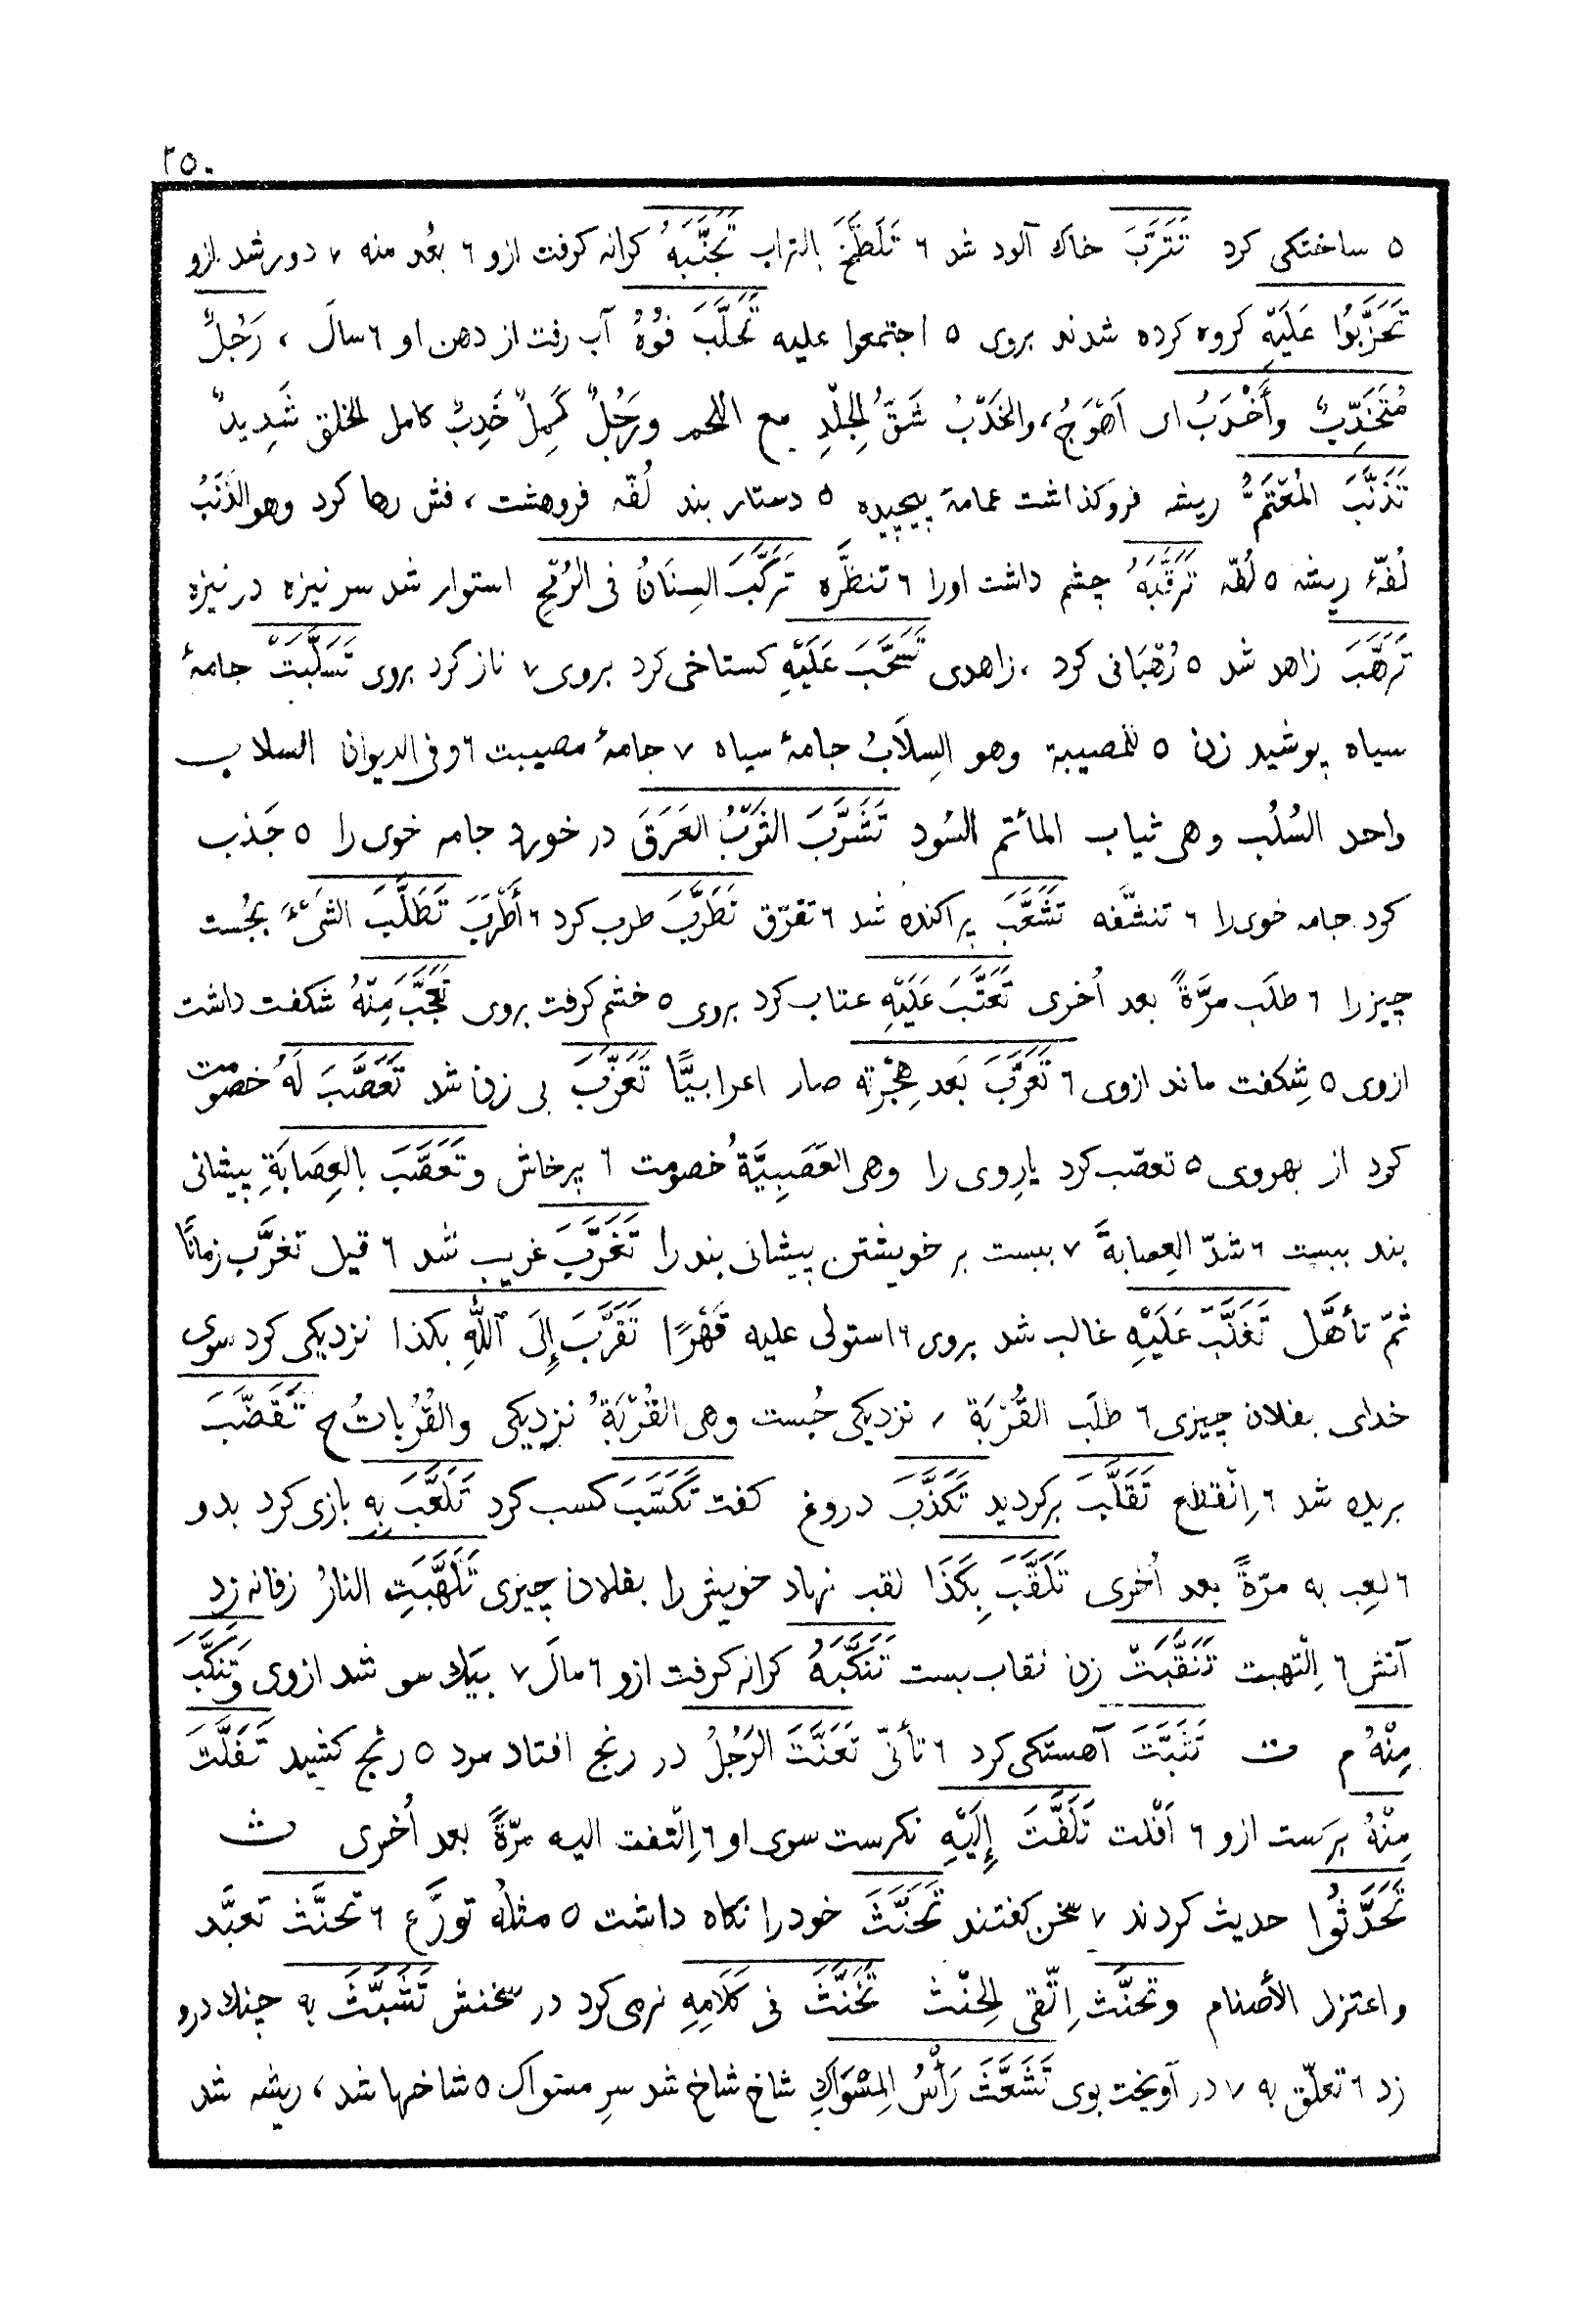 ٢٥٠
٥ ساختكى كرد تَتَرَّبَ خاك آلود شد ٦ تَلَطَّخَ بالتراب تَجَنَّبَهُ كرانه كرفت ازو ٦ بعُد منه ٧ دور شد ازو
تَحَزَّبُوا عَلَيْهِ كروه كرده شدند بروى ٥ اجتمعوا عليه تَحَلَّبَ فُوْهُ آب رفت از دهن او ٦ سالَ ، رَجُلٌ
مُتَخَدِّبٌ وأَخْدَبُ اى اَهْوَجُ، والخَدْبُ شَقُّ الجِلْدِ مع اللحم ورَجُلٌ كَمِلٌ خَدِبٌ كامل الخلق شَدِيدٌ
تَذَنَّبَ المُعْتَمُّ ريشه فروكذاشت عمامهٔ پيچيده ٥ دستار بند لُفّه فروهشت ، فش رها كرد وهو الذَنَبُ
لُفّهٔ ريشه ٥ لُفّه تَرَقَّبَهُ چشم داشت اورا ٦ تنظَّره تَرَكَّبَ السِنَانُ فى الرُمْحِ استوار شد سر نيزه در نيزه
تَرَهَّبَ زاهد شد ٥ رُهْبَانى كرد ، زاهدى تَسَحَّبَ عَلَيْهِ كستاخى كرد بروى ٧ ناز كرد بروى تَسَلَّبَتْ جامهٔ
سياه پوشيد زن ٥ للمصيبة وهو السِلَابُ جامهٔ سياه ٧ جامهٔ مصيبت ٦ وفى الديوان السلاب
واحد السُلُب وهى ثياب المأتم السُود تَشَرَّبَ الثَوْبُ العَرَقَ در خورد جامه خوى را ٥ جَذب
كرد جامه خوى را ٦ تنشَّفه تَشَعَّبَ پراكنده شد ٦ تفرّق تَطَرَّبَ طرب كرد ٦ أَطْرَبَ تَطَلَّبَ الشَىْءَ بجُست
چيز را ٦ طلَب مرَّةً بعد اُخرى تَعَتَّبَ عَلَيْهِ عتاب كرد بروى ٥ خشم كرفت بروى تَعَجَّبَ مِنْهُ شكفت داشت
ازوى ٥ شِكفت ماند ازوى ٦ تَعَرَّبَ بَعد هِجْرته صار اعرابيًّا تَعَزَّبَ بى زن شد تَعَصَّبَ لَهُ خصومت
كرد از بهر وى ٥ تعصّب كرد يارِوى را وهى العَصَبِيَّةُ خصومت ٦ پرخاش وتَعَصَّبَ بالعِصَابَةِ پيشانى
بند ببست ٦ شدّ العِصابةَ ٧ ببست بر خويشتن پيشانى بند را تَغَرَّبَ غريب شد ٦ قيل تغرَّب زمانًا
ثمّ تأهَّل تَغَلَّبَ عَلَيْهِ غالب شد بروى ٦ استولى عليه قَهْرًا تَقَرَّبَ إِلَى ٱللّٰهِ بكذا نزديكى كرد سوى
خداى بفلان چيزى ٦ طلَب القُرْبَة ، نزديكى جُست وهى القُرْبَةُ نزديكى والقُرُباتُ ج تَقَضَّبَ
بريده شد ٦ اِنْقطع تَقَلَّبَ بركرديد تَكَذَّبَ دروغ كفت تَكَسَّبَ كسب كرد تَلَعَّبَ بِهِ بازى كرد بدو
٦ لعِب به مرّةً بعد اُخرى تَلَقَّبَ بِكَذَا لقب نهاد خويش را بفلان چيزى تَلَهَّبَتِ النارُ زفانه زد
آتش ٦ اِلْتهبت تَنَقَّبَتْ زن نقاب بست تَنَكَّبَهُ كرانه كرفت ازو ٦ مالَ ٧ بيَك سو شد ازوى وتَنَكَّبَ
مِنْهُ م ت تَثَبَّتَ آهستكى كرد ٦ تأنّى تَعَنَّتَ الرَجُلُ در رنج افتاد مرد ٥ رنج كشيد تَفَلَّتَ
مِنْهُ برَست ازو ٦ اَفْلت تَلَفَّتَ إِلَيْهِ نكرست سوى او ٦ اِلْتفت اليه مرّةً بعد اُخرى ث
تَحَدَّثُوا حديث كردند ٧ سخن كفتند تَحَنَّثَ خود را نكاه داشت ٥ مثلُه تورَّع ٦ تحنَّث تعبَّد
واعتزل الأصنام وتحنَّث اِتّقى الحِنْث تَخَنَّثَ فى كَلَامِهِ نرمى كرد در سخنش تَشَبَّثَ به چنك درو
زد ٦ تعلّق به ٧ در آويخت بوى تَشَعَّثَ رَأْسُ المِسْوَاكِ شاخ شاخ شد سرِ مسواك ٥ شاخها شد ، ريشه شد